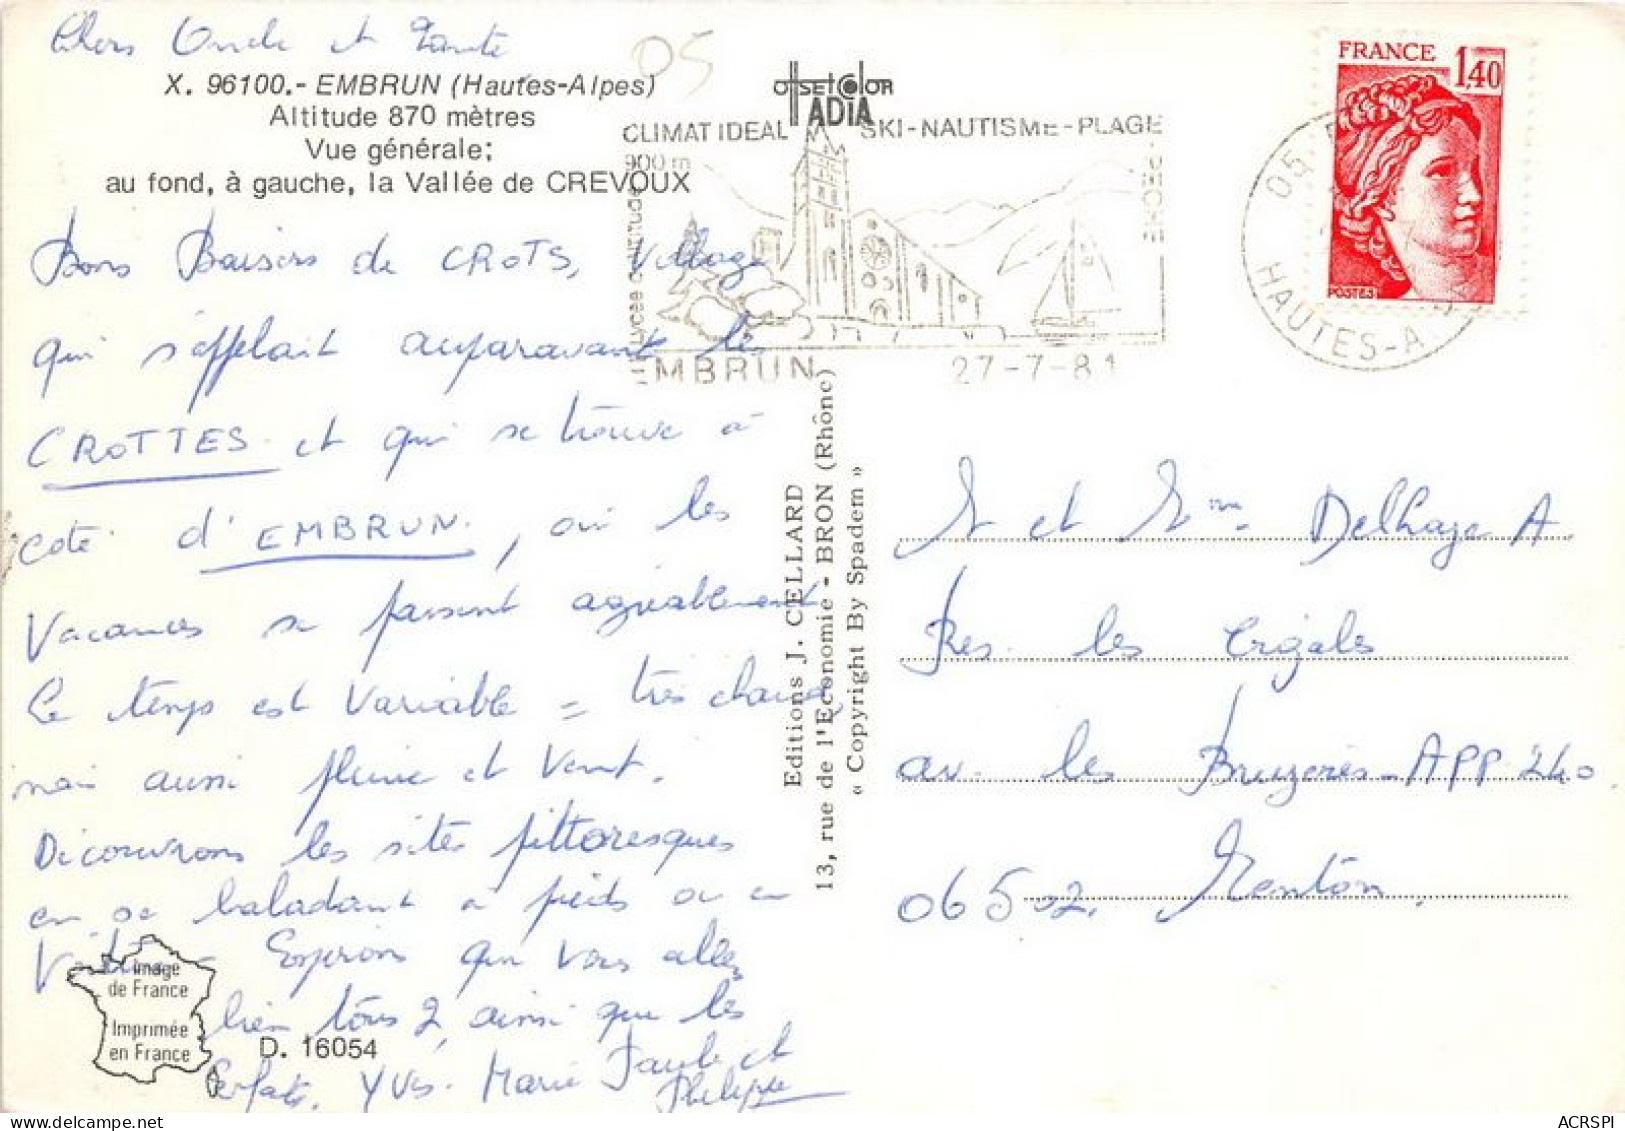 Chers Oncle et Tante
05
X. 96100.- EMBRUN (Hautes-Alpes)
Altitude 870 mètres
Vue générale;
au fond, à gauche, la Vallée de CREVOUX
Bons Baisers de CROTS, Village
qui s'appelait auparavant les
CROTTES et qui se trouve à
coté d'EMBRUN, où les
Vacances se passent agréablement
Le temps est Variable = très chaud
mais aussi pluie et Vent.
Découvrons les sites pittoresques
en se baladant à pieds ou en
Voiture - Espérons que vous allez
bien tous 2, ainsi que les
Enfants. YVES. Marie Paule et
Philippe
Image
de France
Imprimée
en France
D. 16054
offset color
ADIA
CLIMAT IDEAL SKI-NAUTISME-PLAGE
-PECHE
900 m
Lycée d'altitude
EMBRUN 27-7-81
Editions J. CELLARD
13, rue de l'Economie - BRON (Rhône)
« Copyright By Spadem »
FRANCE 1,40
POSTES
05
HAUTES-A
M et Mme Delhaye A.
Res. les Cigales
av. les Bruyères - APP 240
06502. Menton.
ACRSPI